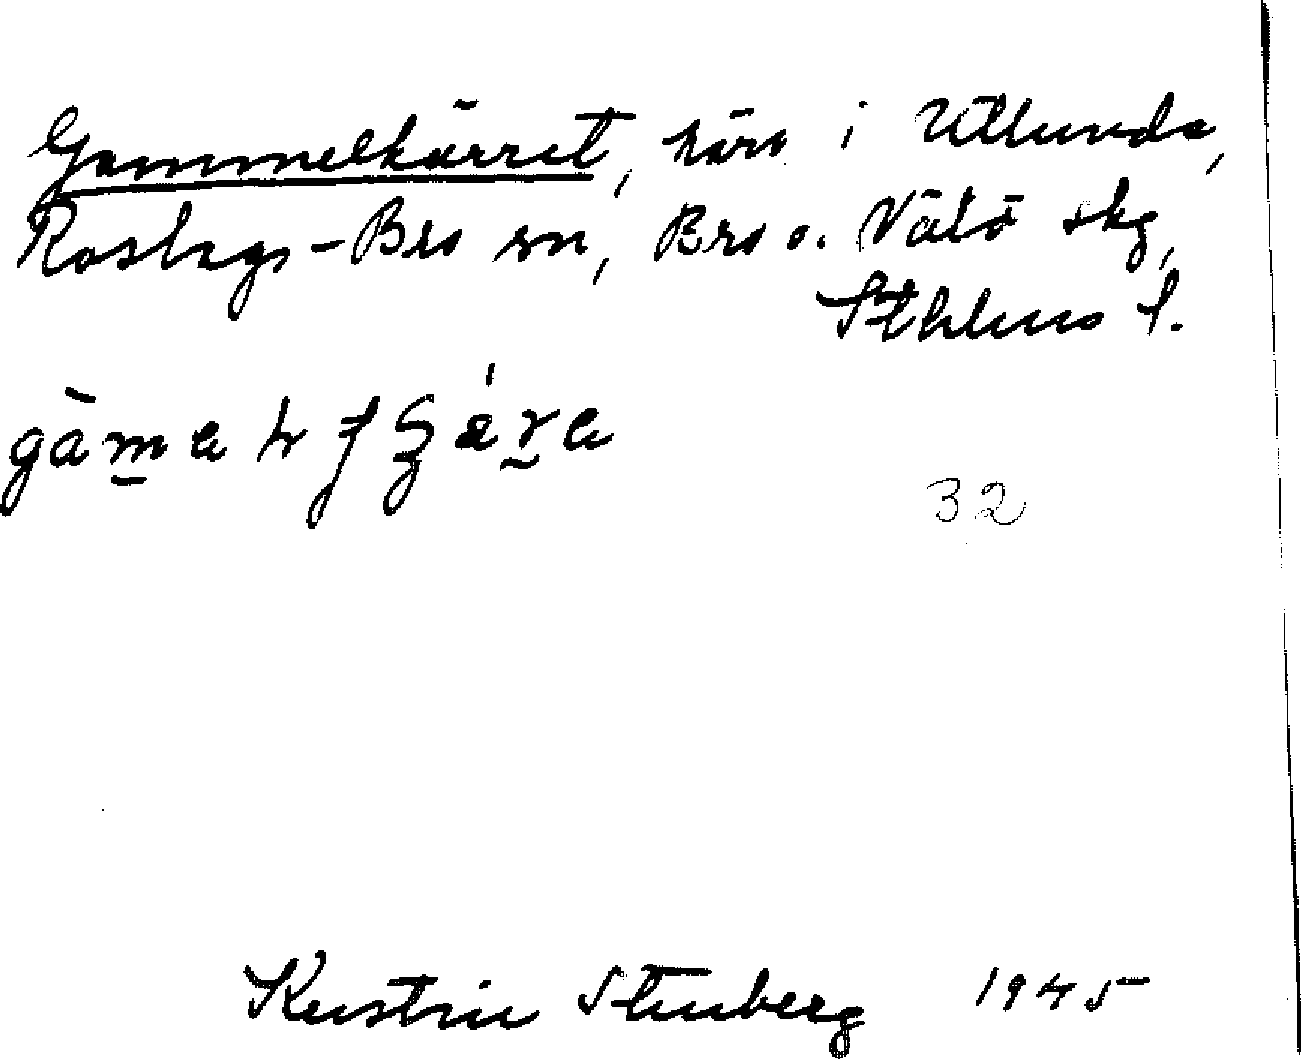 Gammelkärret, kärr i Utlunda,
Roslags-Bro sn, Bro o. Vätö skg,
Sthlms l.
32
Kerstin Stenberg 1945